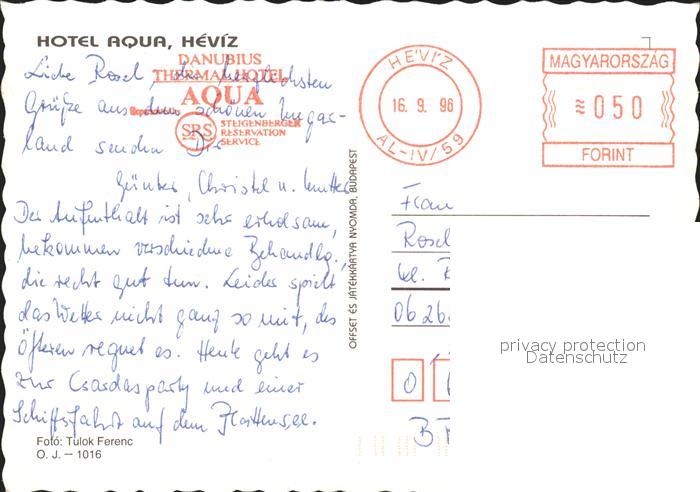 HOTEL AQUA, HÉVÍZ
DANUBIUS
THERMAL HOTEL
AQUA
SRS
STEIGENBERGER
RESERVATION
SERVICE
HÉVÍZ
16. 9. 96
AL-IV/59
MAGYARORSZÁG
≈050
FORINT
Liebe Rosel, die herzlichsten
Grüße aus dem schönen Ungar-
land senden Dir
Günter, Christel u. Mutter
Der Aufenthalt ist sehr erholsam,
bekommen verschiedene Behandlg.,
die recht gut tun. Leider spielt
das Wetter nicht ganz so mit, des
Öfteren regnet es. Heute geht es
zur Csardasparty und einer
Schiffsfahrt auf dem Plattensee.
Foto: Tulok Ferenc
O. J. — 1016
OFFSET ÉS JÁTÉKKÁRTYA NYOMDA, BUDAPEST
Frau
Rosel
kl.
0626
0
privacy protection
Datenschutz